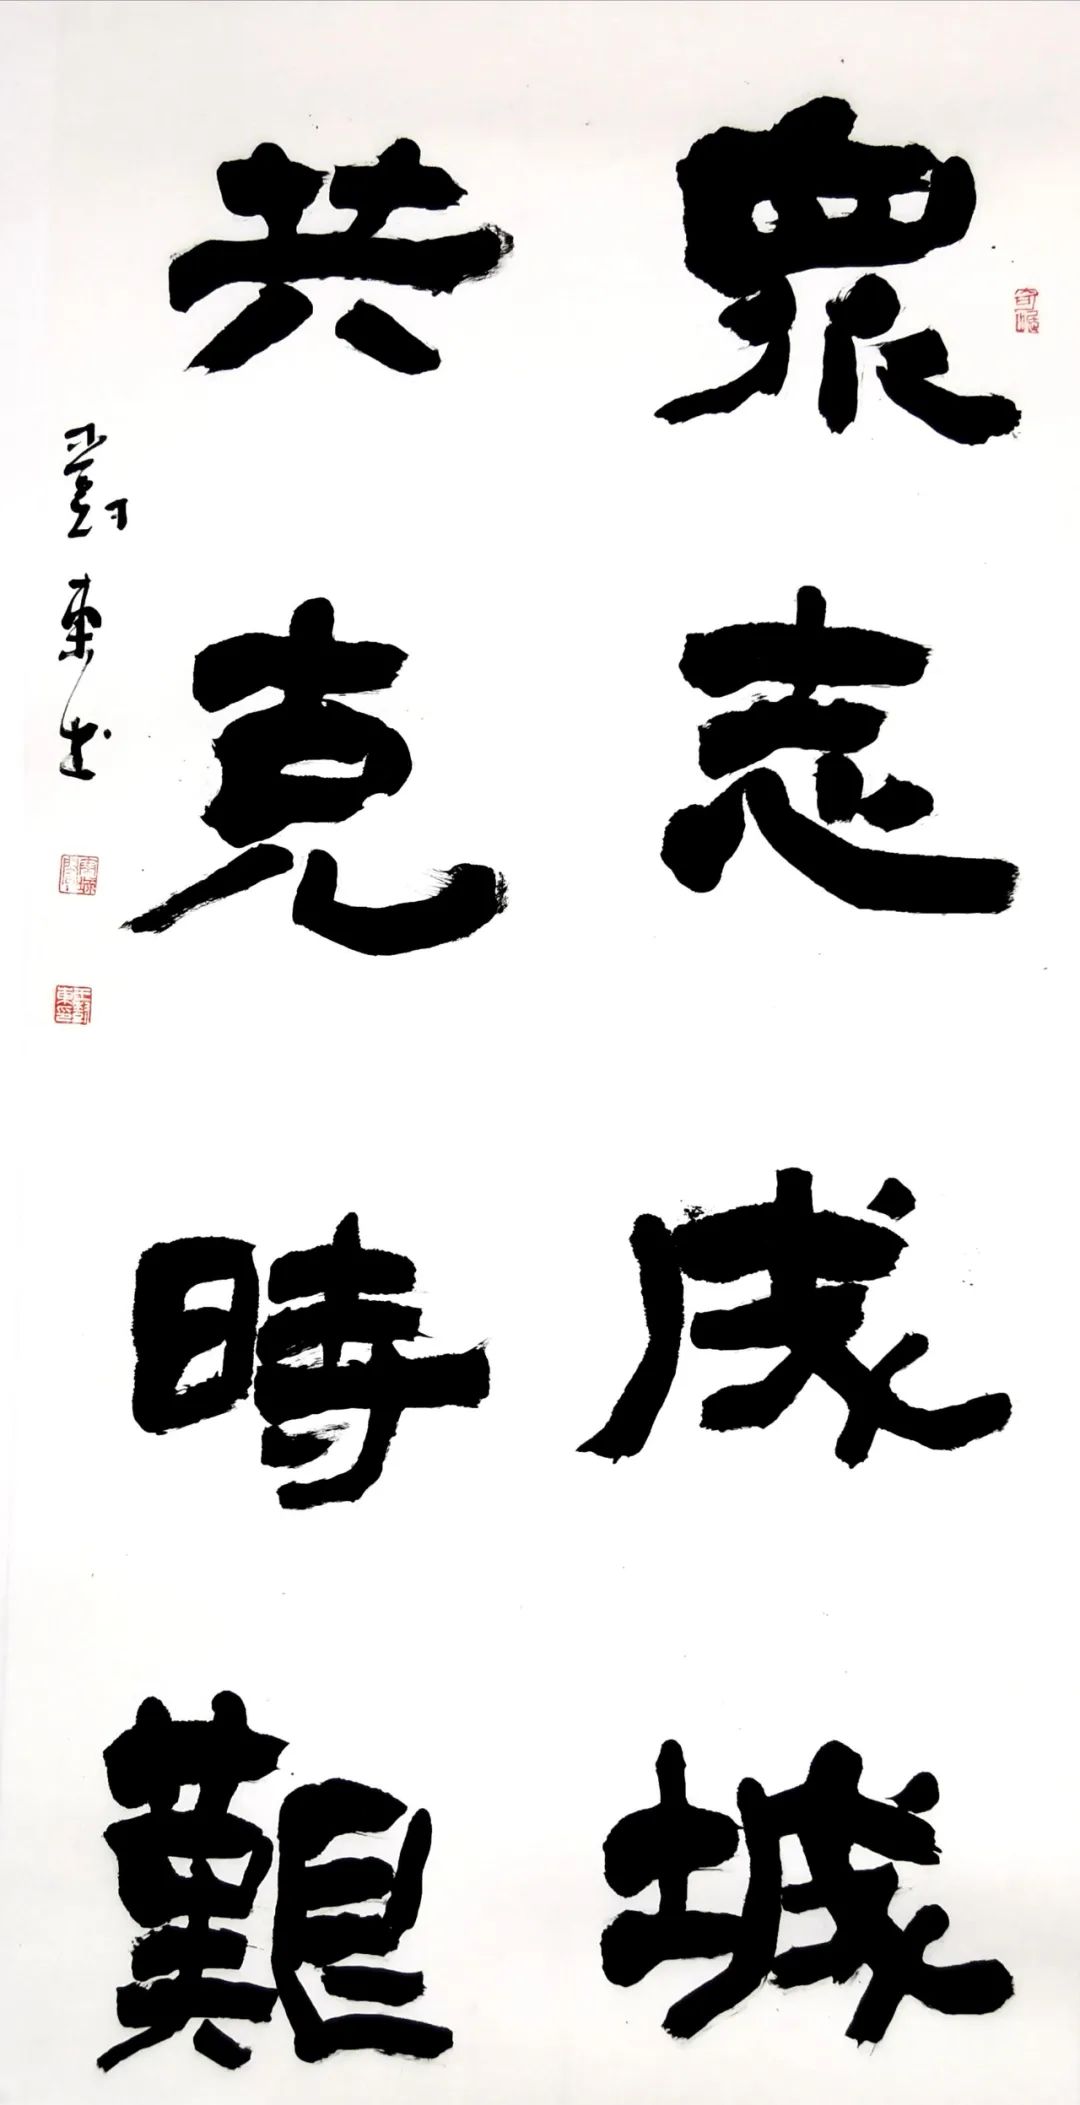 眾志成城
共克時艱
劉東书